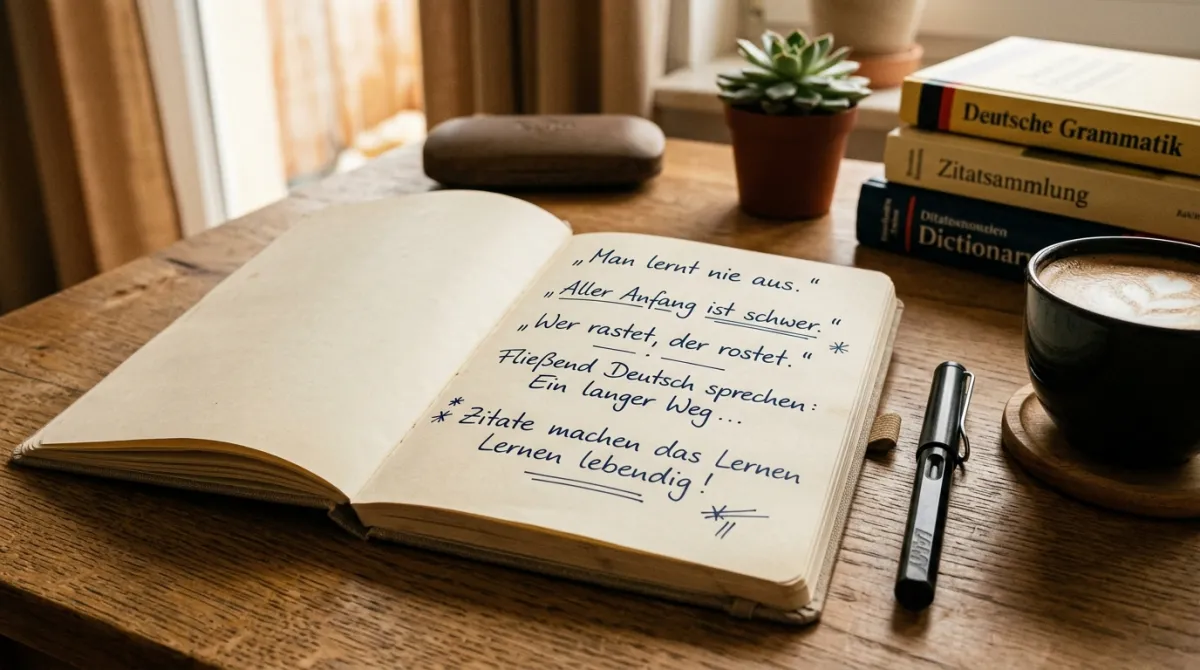 „Man lernt nie aus.“
„Aller Anfang ist schwer.“
„Wer rastet, der rostet.“ *
Fließend Deutsch sprechen:
Ein langer Weg...
* Zitate machen das Lernen
* Lernen lebendig!
Deutsche Grammatik
Zitatsammlung
Dictionar